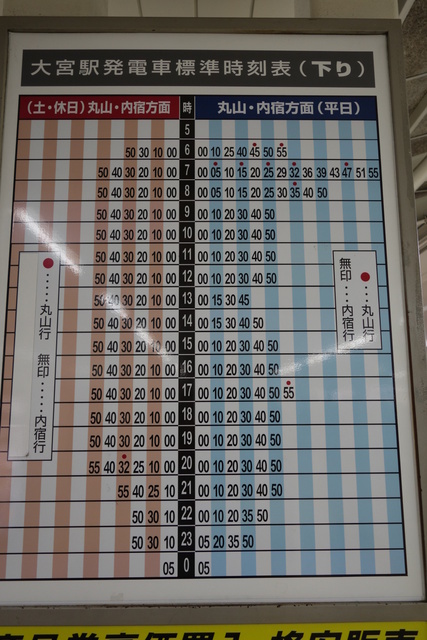 大宮駅発電車標準時刻表（下り）
（土・休日）丸山・内宿方面 時 丸山・内宿方面（平日）
5
50 30 10 00 6 00 10 25 40 45 50 55
50 40 30 20 10 00 7 00 05 10 15 20 25 29 32 36 39 43 47 51 55
50 40 30 20 10 00 8 00 05 10 15 20 25 30 35 40 50
50 40 30 20 10 00 9 00 10 20 30 40 50
50 40 30 20 10 00 10 00 10 20 30 40 50
50 40 30 20 10 00 11 00 10 20 30 40 50
50 40 30 20 10 00 12 00 10 20 30 40 50
50 40 30 20 10 00 13 00 15 30 45
50 40 30 20 10 00 14 00 15 30 40 50
50 40 30 20 10 00 15 00 10 20 30 40 50
50 40 30 20 10 00 16 00 10 20 30 40 50
50 40 30 20 10 00 17 00 10 20 30 40 50 55
50 40 30 20 10 00 18 00 10 20 30 40 50
50 40 30 20 10 00 19 00 10 20 30 40 50
55 40 32 25 10 00 20 00 10 20 30 40 50
55 40 25 10 21 00 10 20 30 40 50
50 30 10 22 00 10 22 35 50
50 30 10 23 05 20 35 50
05 0 05
●……丸山行 無印……内宿行
●…丸山行
無印…内宿行